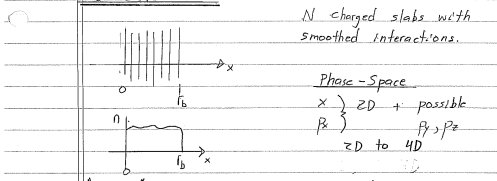 N charged slabs with
smoothed interactions.
x
0
r_b
Phase-Space
x } 2D + possible
p_x } p_y, p_z
2D to 4D
n
r_b
x
0